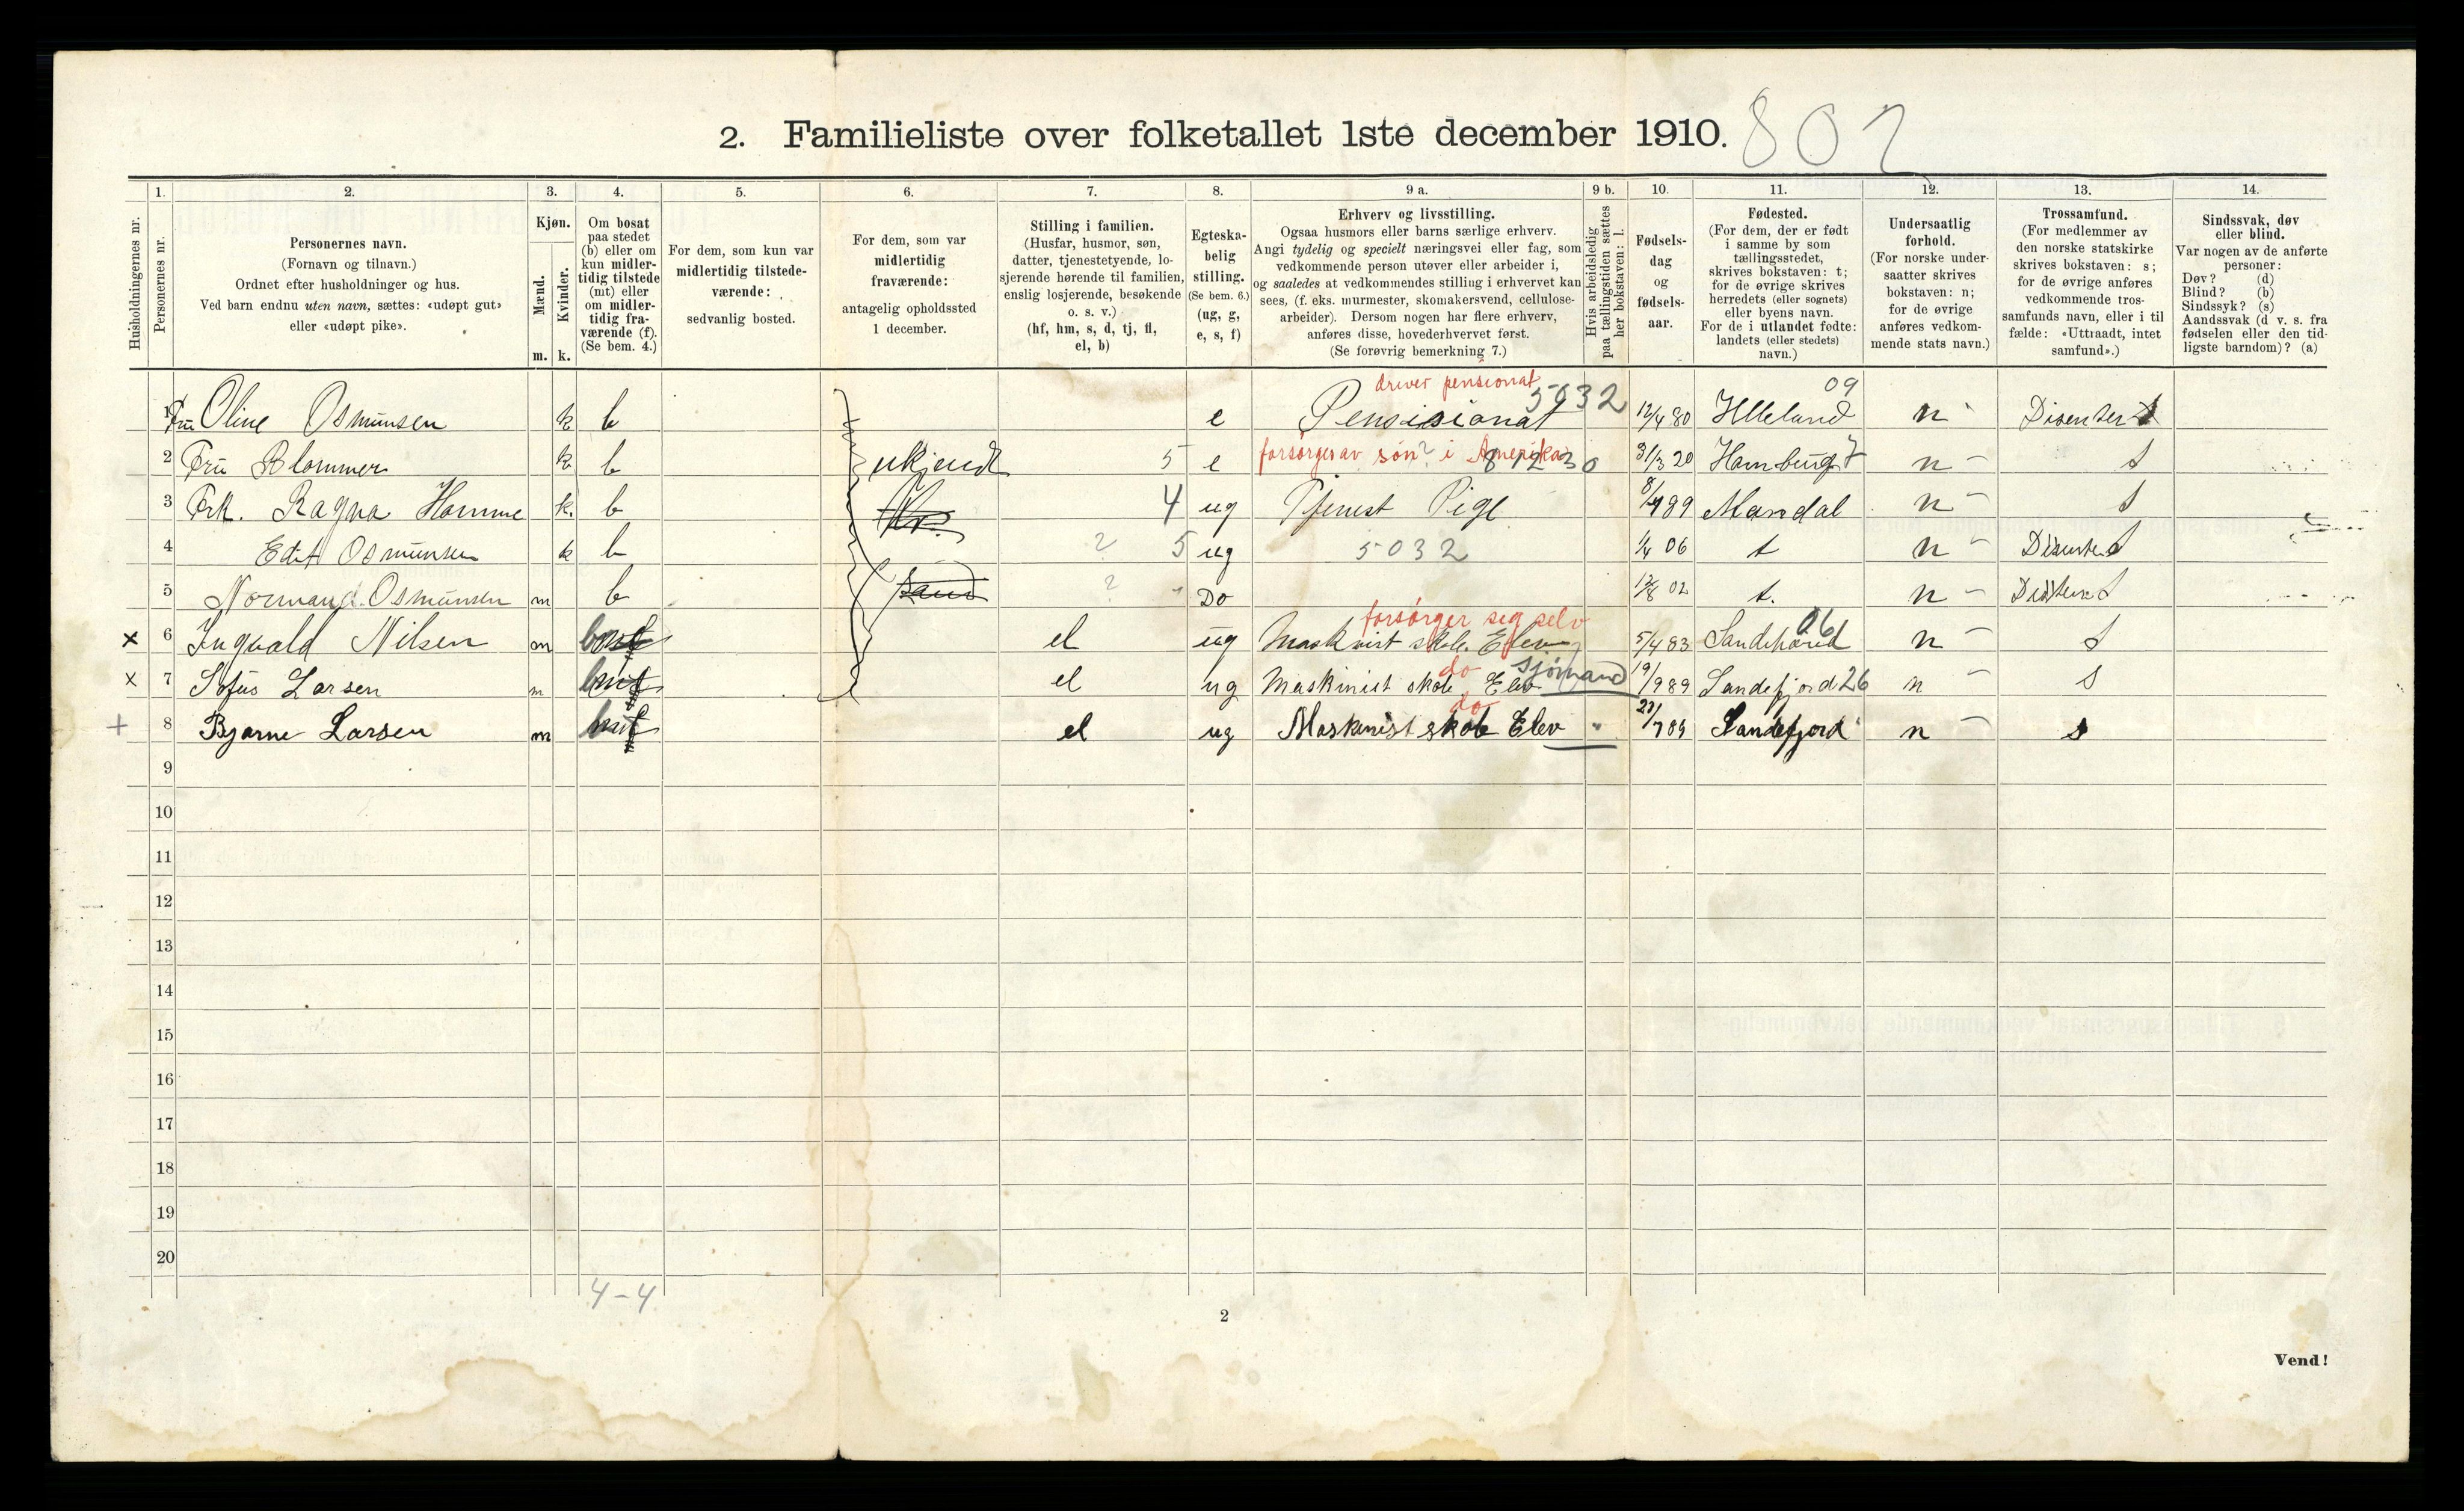 2. Familieliste over folketallet 1ste december 1910. 802
Husholdningernes nr.
1. Personernes nr.
2. Personernes navn. (Fornavn og tilnavn.) Ordnet efter husholdninger og hus. Ved barn endnu uten navn, sættes: «udøpt gut» eller «udøpt pike».
3. Kjøn. Mænd. m. Kvinder. k.
4. Om bosat paa stedet (b) eller om kun midlertidig tilstede (mt) eller om midlertidig fraværende (f). (Se bem. 4.)
5. For dem, som kun var midlertidig tilstedeværende: sedvanlig bosted.
6. For dem, som var midlertidig fraværende: antagelig opholdssted 1 december.
7. Stilling i familien. (Husfar, husmor, søn, datter, tjenestetyende, losjerende hørende til familien, enslig losjerende, besøkende o. s. v.) (hf, hm, s, d, tj, fl, el, b)
8. Egteskabelig stilling. (Se bem. 6.) (ug, g, e, s, f)
9 a. Erhverv og livsstilling. Ogsaa husmors eller barns særlige erhverv. Angi tydelig og specielt næringsvei eller fag, som vedkommende person utøver eller arbeider i, og saaledes at vedkommendes stilling i erhvervet kan sees, (f. eks. murmester, skomakersvend, cellulosearbeider). Dersom nogen har flere erhverv, anføres disse, hovederhvervet først. (Se forøvrig bemerkning 7.)
9 b. Hvis arbeidsledig paa tællingstiden sættes her bokstaven: l.
10. Fødselsdag og fødselsaar.
11. Fødested. (For dem, der er født i samme by som tællingsstedet, skrives bokstaven: t; for de øvrige skrives herredets (eller sognets) eller byens navn. For de i utlandet fødte: landets (eller stedets) navn.)
12. Undersaatlig forhold. (For norske undersaatter skrives bokstaven: n; for de øvrige anføres vedkommende stats navn.)
13. Trossamfund. (For medlemmer av den norske statskirke skrives bokstaven: s; for de øvrige anføres vedkommende trossamfunds navn, eller i tilfælde: «Uttraadt, intet samfund».)
14. Sindssvak, døv eller blind. Var nogen av de anførte personer: Døv? (d) Blind? (b) Sindssyk? (s) Aandssvak (d. v. s. fra fødselen eller den tidligste barndom)? (a)
driver pensionat 5032 09
1 Fru Oline Osmunsen k b e Pensisionat 12/4 80 Helleland n Disenter s
2 Fru Blommer k b ukjendt 5 e forsørges av søn? i Amerika 81230 31/3 20 Hamburg 7 n - s
3 Frk. Ragna Homme k. b 4 ug Tjenest Pige 8/4 89 Mandal n - s
4 Edit Osmunsen k b ? 5 ug 5032 1/4 06 t n - Disenter s
5 Normand Osmunsen m b ? " Do 12/8 02 t. n - s
forsørger seg selv 06
x 6 Ingvald Nilsen m el ug Maskinist skole Elev 5/4 83 Sandeherred n - s
do sjømand
x 7 Sofus Larsen m el ug Maskinist skole Elev 19/9 89 Sandefjord 26 n - s
do
+ 8 Bjarne Larsen m el ug Maskinist skole Elev " 23/7 89 Sandefjord n - s
9
10
11
12
13
14
15
16
17
18
19
20
4-4
2
Vend!